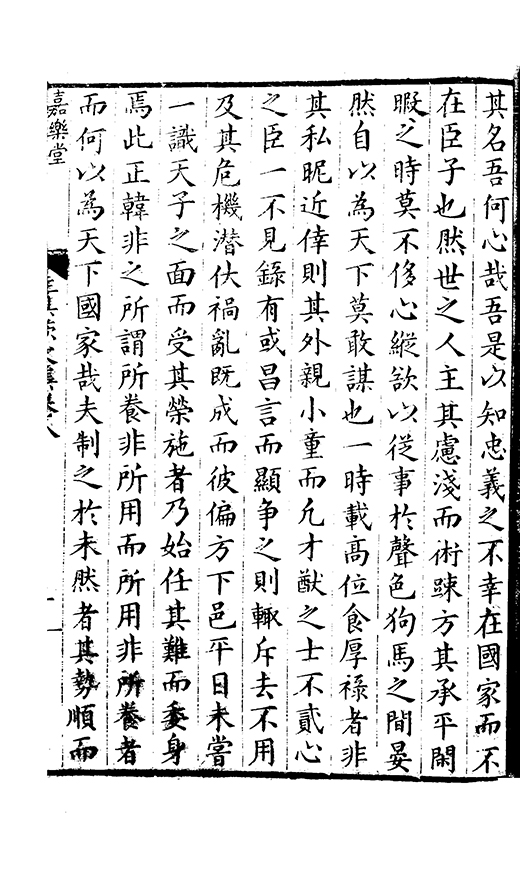 其名吾何心哉吾是以知忠義之不幸在國家而不
在臣子也然世之人主其慮淺而術踈方其承平閑
暇之時莫不侈心縱欲以從事於聲色狗馬之間晏
然自以為天下莫敢謀也一時載高位食厚禄者非
其私昵近倖則其外親小童而凢才猷之士不貳心
之臣一不見錄有或昌言而顯争之則輙斥去不用
及其危機潜伏禍亂既成而彼偏方下邑平日未嘗
一識天子之面而受其榮施者乃始任其難而委身
焉此正韓非之所謂所養非所用而所用非所養者
而何以為天下國家哉夫制之於未然者其勢順而
嘉樂堂
集卷八